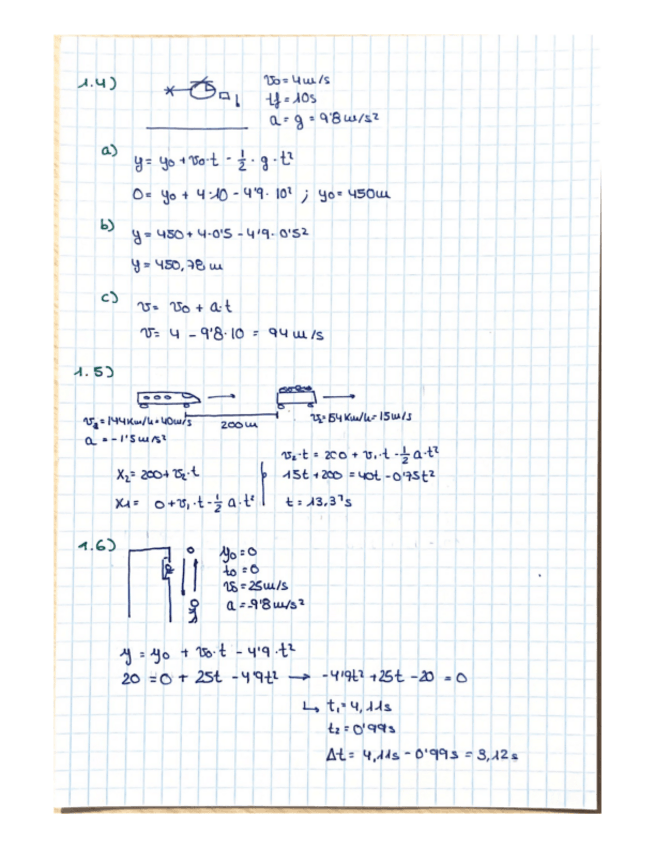 1.4)
v0 = 4 m/s
tf = 10s
a = g = 9'8 m/s²
a) y = y0 + v0·t - 1/2 · g · t²
0 = y0 + 4·10 - 4'9 · 10² ; y0 = 450m
b) y = 450 + 4·0'5 - 4'9 · 0'5²
y = 450,78 m
c) v = v0 + a·t
v = 4 - 9'8·10 = 94 m/s
1.5)
v1 = 144 Km/h = 40 m/s
a = -1'5 m/s²
200m
v2 = 54 Km/h = 15 m/s
x2 = 200 + v2·t
x1 = 0 + v1·t - 1/2 a·t²
v2·t = 200 + v1·t - 1/2 a·t²
15t + 200 = 40t - 0'75t²
t = 13,3's
1.6)
y0 = 0
t0 = 0
v0 = 25 m/s
a = -9'8 m/s²
y = y0 + v0·t - 4'9·t²
20 = 0 + 25t - 4'9t² → -4'9t² + 25t - 20 = 0
↳ t1 = 4,11s
t2 = 0'99s
Δt = 4,11s - 0'99s = 3,12s